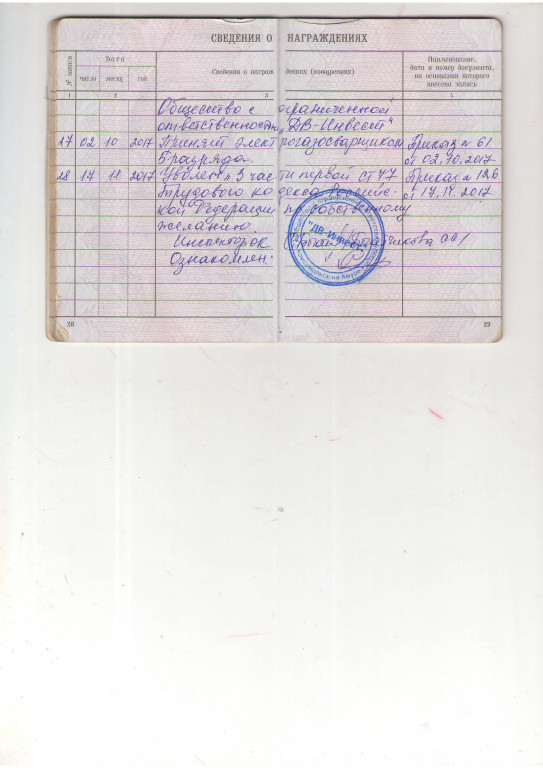 СВЕДЕНИЯ О НАГРАЖДЕНИЯХ
№ записи
Дата
число
месяц
год
Сведения о награждениях (поощрениях)
Наименование,
дата и номер документа,
на основании которого
внесена запись
1 2 3 4
Общество с ограниченной
ответственностью "ДВ-Инвест"
27 02 10 2017 Принят электрогазосварщиком Приказ № 61
5 разряда. от 02.10.2017
28 17 11 2017 Уволен п 3 части первой ст 77 Приказ № 126
Трудового кодекса Россий- от 17.11.2017
ской Федерации по собственному
желанию.
Инспектор ОК
Ознакомлен:
"ДВ-Инвест"
28
29